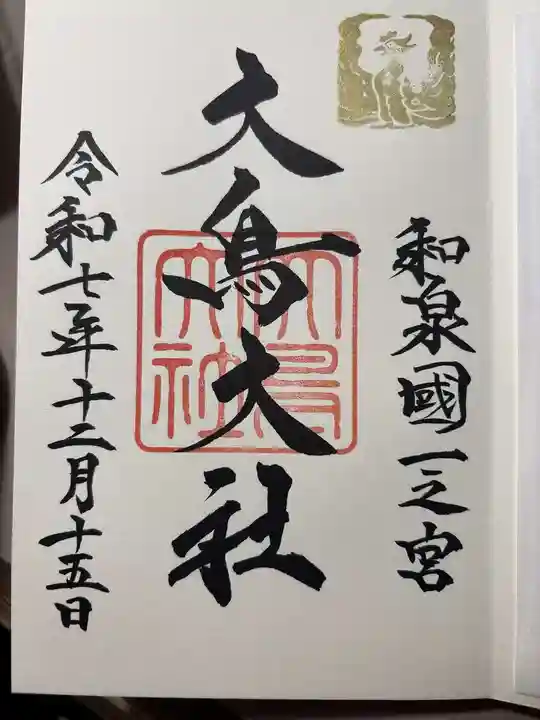 和泉國一之宮
大鳥大社
大鳥大社
令和七年十二月十五日